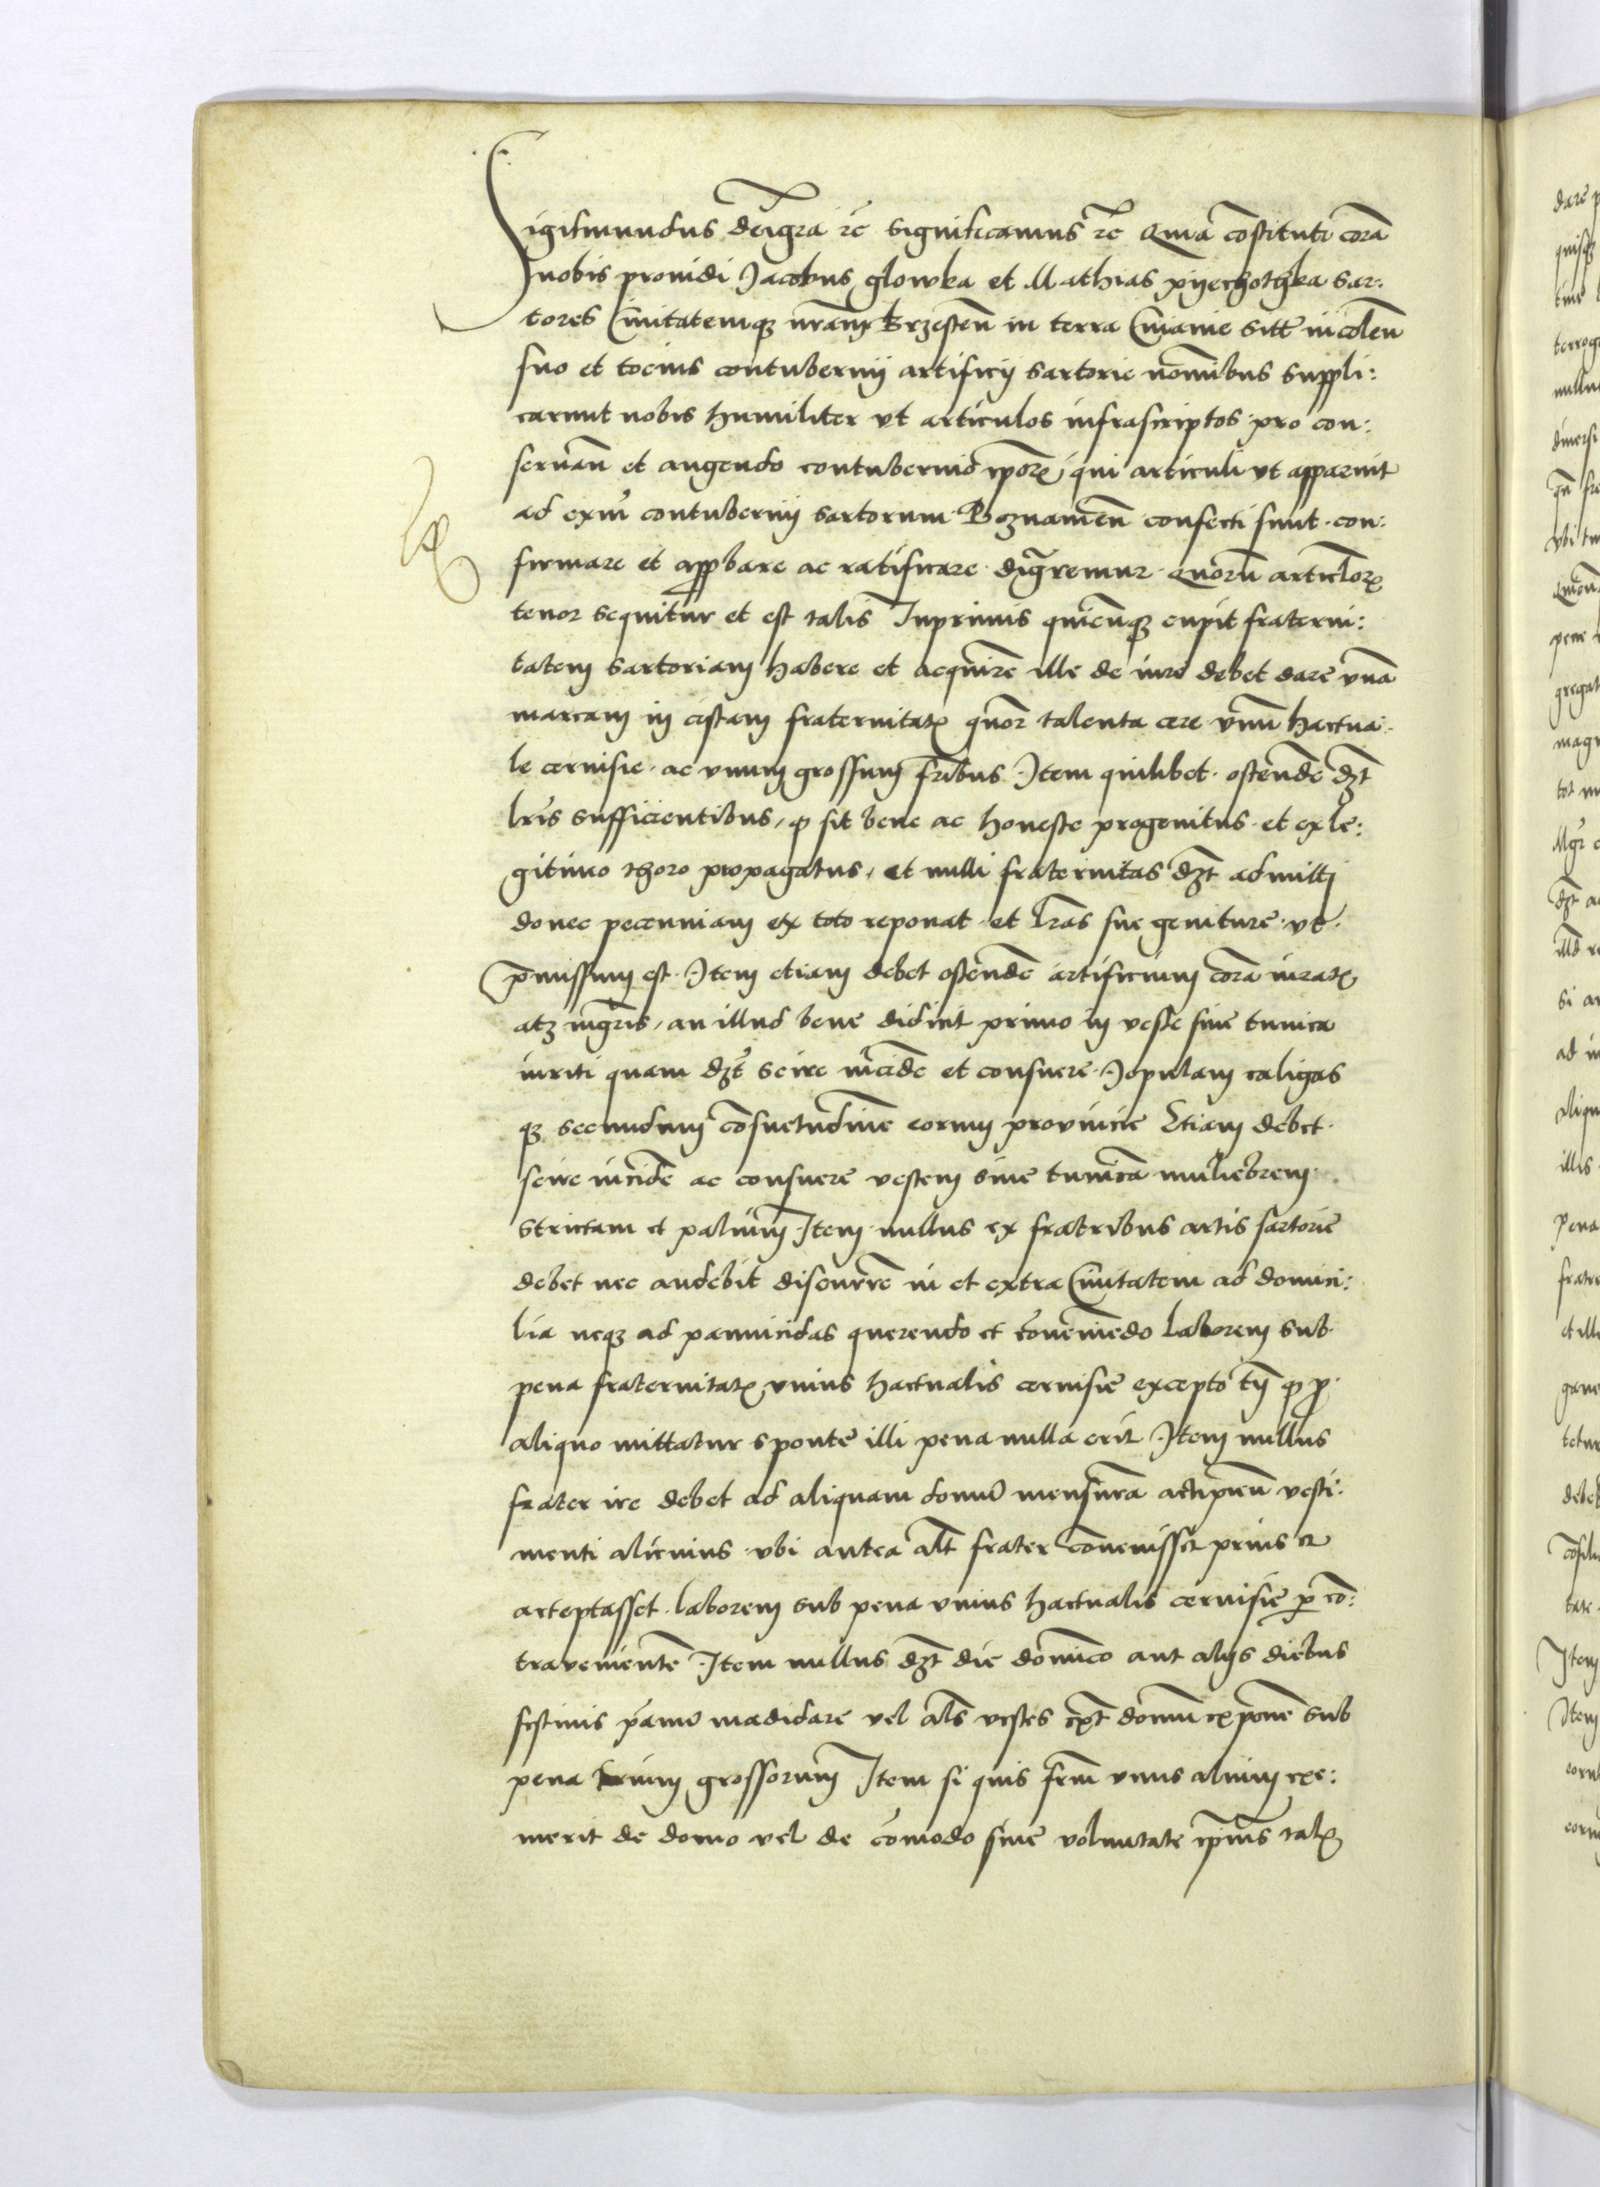 Sigismundus dei gra̅ rc̅ significamus rc̅ Quia co̅stituti cora̅
nobis prouidi Jacobus glowka et Mathias pyechothka sar:
tores Ciuitatemq nr̅am Brzesten̅ in terra Cuiauie sitt̅ incolen̅
suo et tocius contubernij artificij sartorie no̅i̅bus suppli:
carunt nobis humiliter vt articulos infrascriptos pro con:
seruan̅ et augendo contubernio ip̅or qui articuli vt apparuit
ad exm̅ contubernij sartorum Poznanien̅ confecti sunt con:
firmare et approbare ac ratificare dig̅remur Quoru̅ articlor̅
tenor sequitur et est talis Inprimis quicu̅q cupit fraterni:
tatem sartoriam habere et acquire̅ ille de iure debet dare vna̅
marcam in cistam fraternitat quor̅ talenta cere vnu̅ hactua
le ceruisie ac vnum grossum fr̅ibus Item quilibet oste̅nde̅ dz̅t
lr̅is sufficientibus, q sit bene ac honeste progenitus et ex le:
gitimo thoro propagatus, et nulli fraternitas dz̅t admitti
donec pecuniam ex toto reponat et lr̅as sue geniture vt
p̅missum est Item etiam debet oste̅nde̅ artificium cora̅ iurat
atq mgr̅is, an illud bene didicit primo in veste siue tunica
in̅cide̅ et consuere Jopulam caligas
q secundum co̅suetudine̅ eorum prouincie Etiam debet
scire incide̅ ac consuere vestem siue tunica̅ muliebrem
strictam et palium̅ Item nullus ex fratribus artis sartorie
debet nec audebit discurre̅ in et extra Ciuitatem ad domici:
lia neq ad pannicidas querendo et co̅ueniendo laborem sub
pena fraternitat vnius hactualis ceruisie excepto tn̅ q p
aliquo mittatur sponte illi pena nulla erit Item nullus
frater ire debet ad aliquam domu̅ mensura̅ accipien̅ vesti:
menti alicuius vbi antea alt̅ frater co̅uenisset prius et
acceptasset laborem sub pena vnius hactualis ceruisie p co̅:
traueniente̅ Item nullus dz̅t die do̅nico aut alijs diebus
festiuis pa̅nu̅ madidare vel al̅s vestes domu̅ expone̅ sub
pena grossorum̅ Item si quis fr̅m vnus alium exe:
merit de domo vel de co̅modo sine voluntate ip̅ius tal